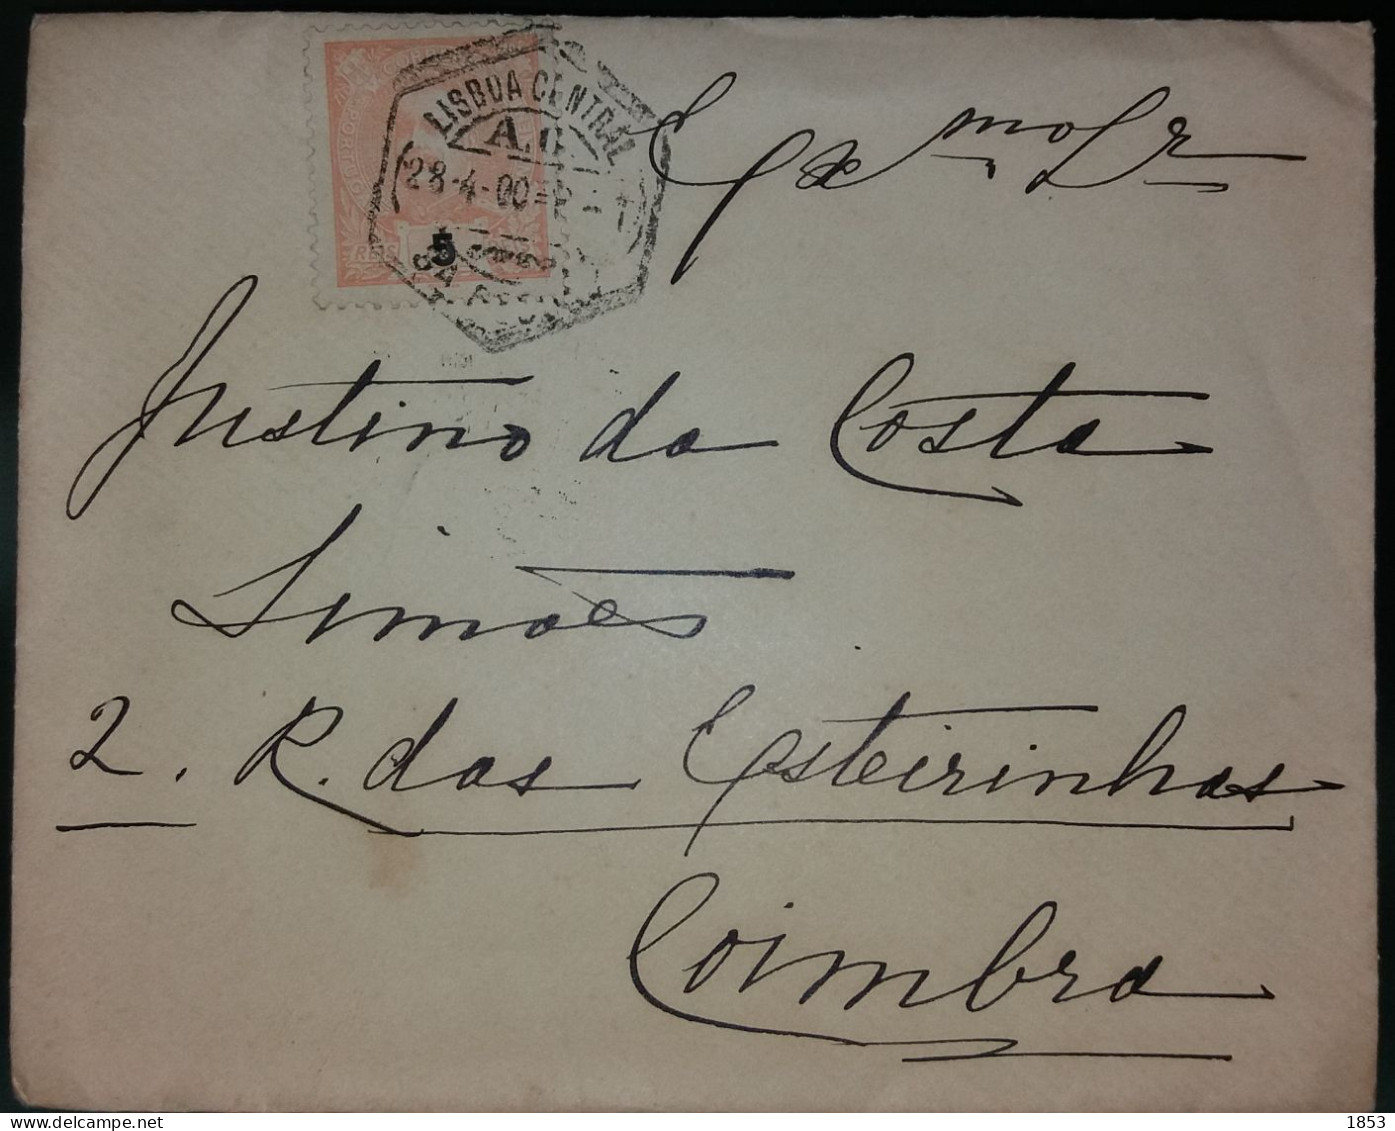 PORTUGAL
LISBOA CENTRAL
28-4-00
5
REIS
Exmo Sr
Justino da Costa
Simões
2. R. das Esteirinhas
Coimbra
1853